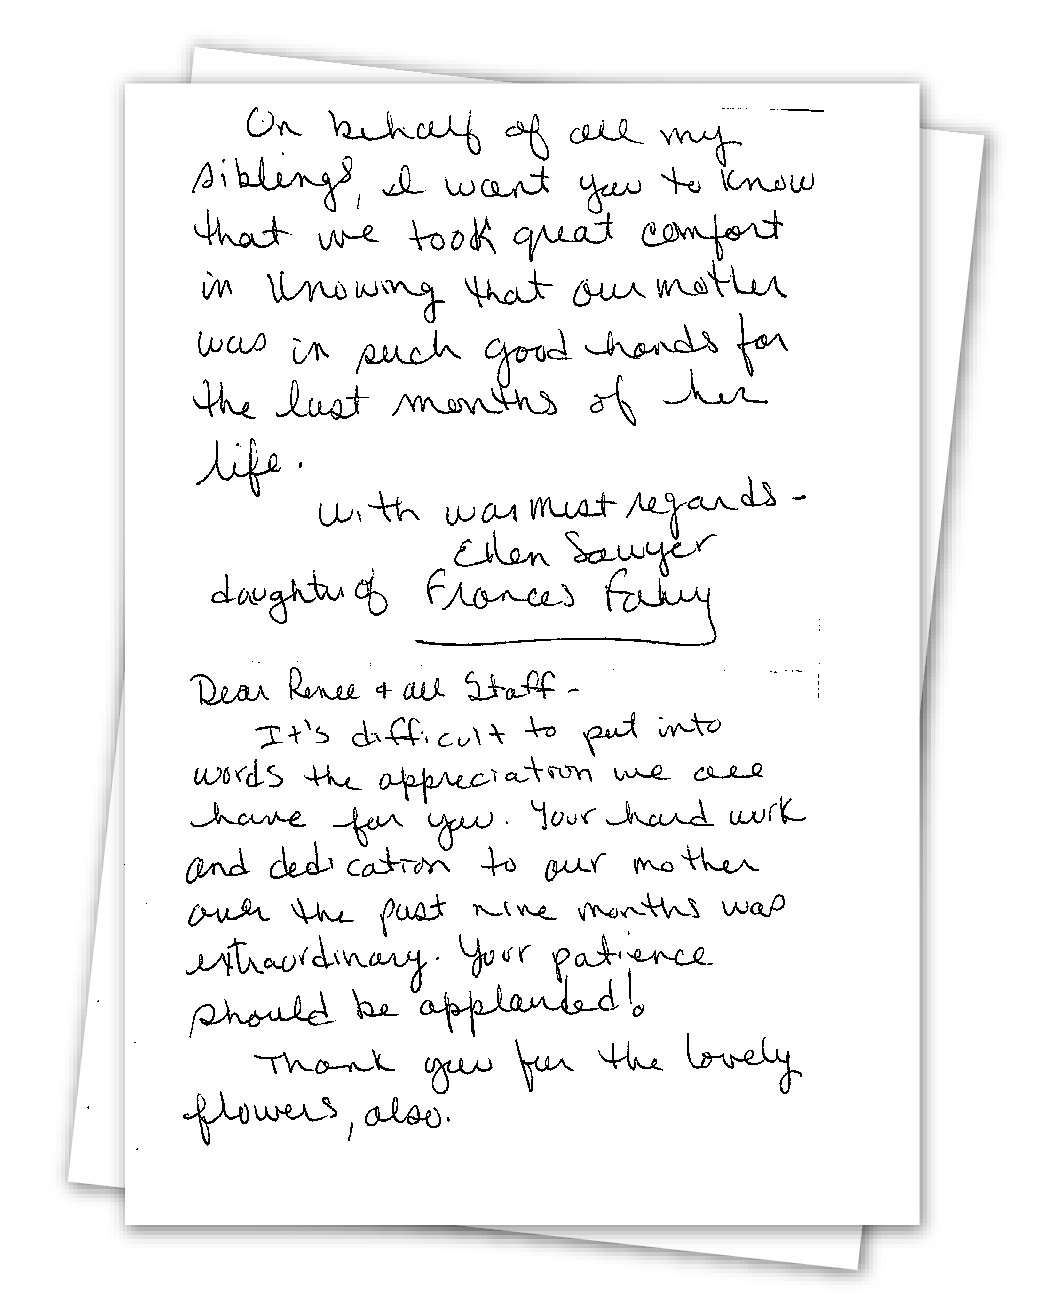 On behalf of all my
siblings, I want you to know
that we took great comfort
in knowing that our mother
was in such good hands for
the last months of her
life.
With warmest regards -
Ellen Sawyer
daughter of Frances Fahey
Dear Renee + all Staff -
It's difficult to put into
words the appreciation we all
have for you. Your hard work
and dedication to our mother
over the past nine months was
extraordinary. Your patience
should be applauded!
Thank you for the lovely
flowers, also.